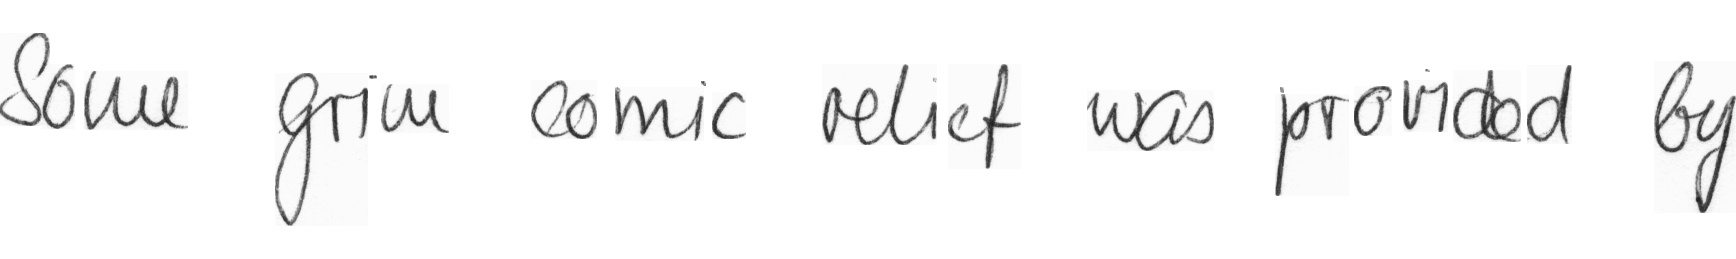 Some grim comic relief was provided by